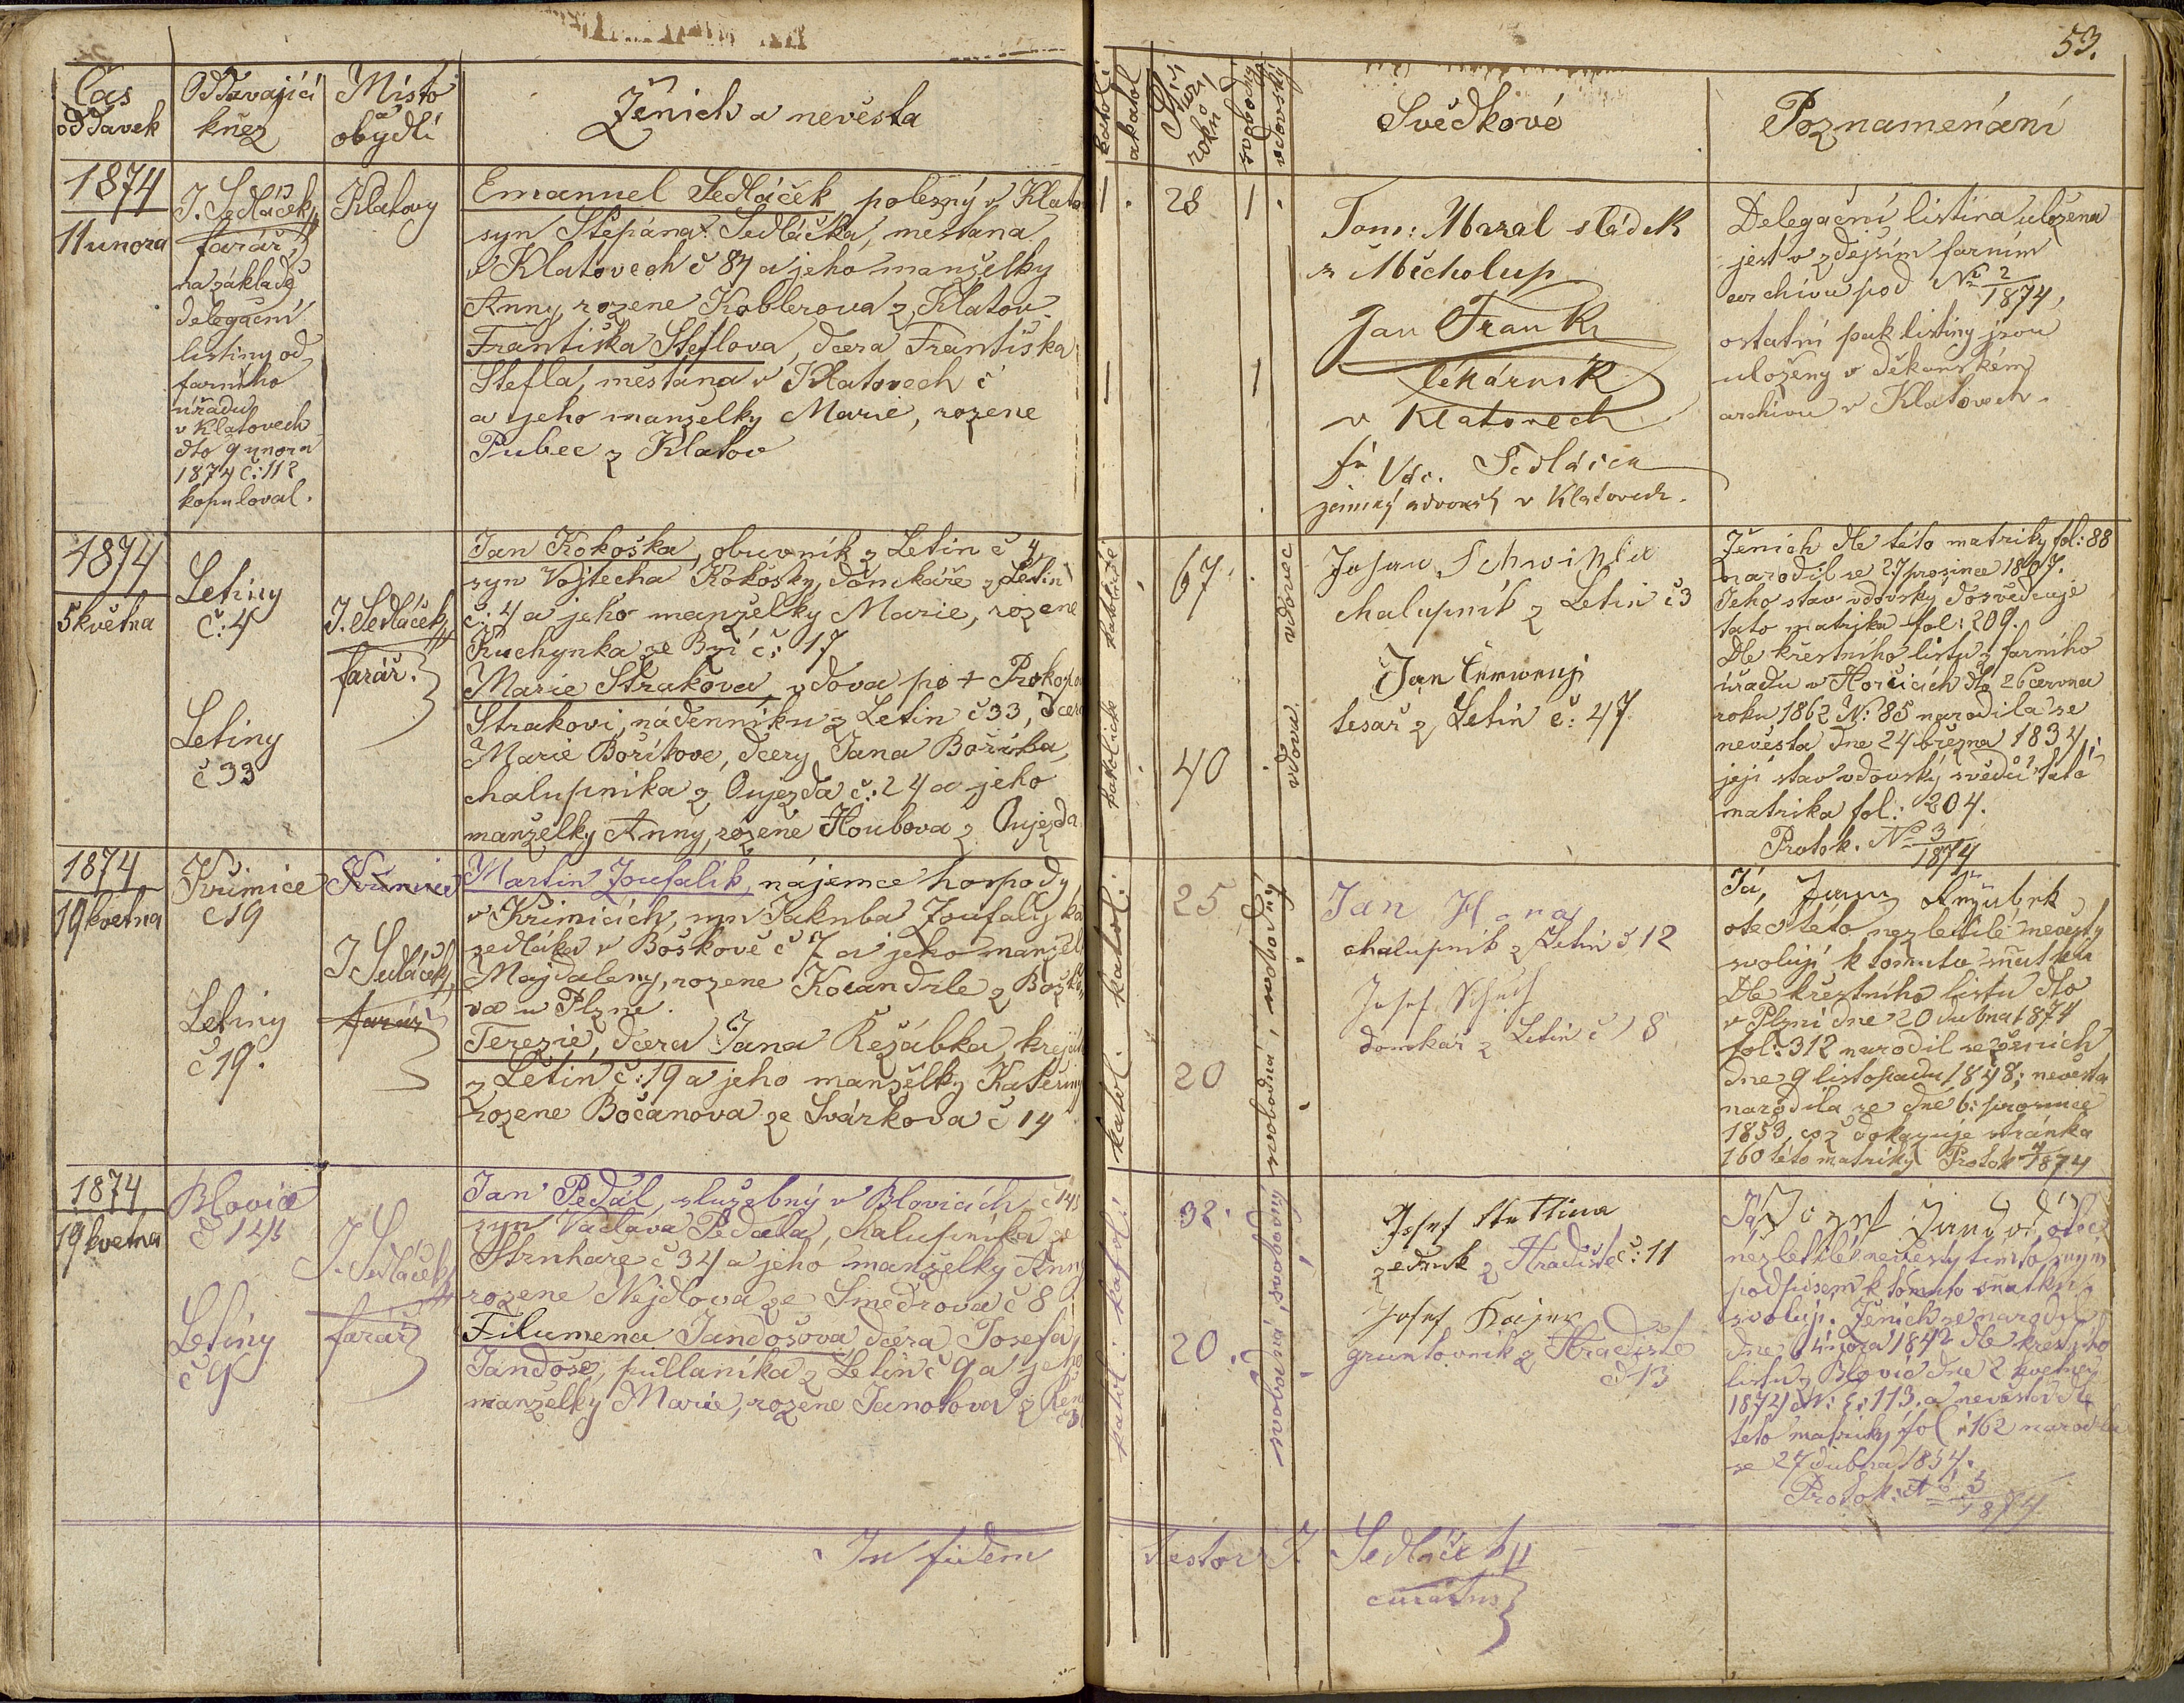 53.
Čas
oddavek
Oddávající
kněz
Místo
a
obydlí
Ženich a nevěsta
katol:
akatol
Stáří
roků
svobodný
vdovský
Svědkové
Poznamenání
1874
11 unora
J. Sedláček,
farář,
na základě
delegační
listiny od
farního
úřadu
v Klatovech
dto 9 unora
1874 č: 112
kopuloval.
Klatovy
Emanuel Sedláček, polesný v Klato
syn Štěpána Sedláčka, měšťana
v Klatovech č 87 a jeho manželky
Anny, rozene Koblerova z Klatov.
Františka Šteflova, dcera Františka
Štefla, měšťana v Klatovech č
a jeho manželky Marie, rozene
Pubec z Klatov
28
Tom: Mazal sládek
z Měcholup
Jan Frank
lékárník
v Klatovech
Sedláček
zemský advokát v Klatovech.
Delegační listina uložena
jest v zdejším farním
archivu pod No 2/1874,
ostatní pak listiny jsou
uloženy v děkanském
archivu v Klatovech.
1874
5 května
Letiny
č: 4
Letiny
č 33
J. Sedláček,
farář.
Jan Kokoška, obuvník z Letin č 4
syn Vojtecha Kokošky, domkáře z Letin
č: 4 a jeho manželky Marie, rozene
Kuchynka ze Bzí č: 17
Marie Strakova, vdova po + Prokopo
Strakovi, nádenníku z Letin č 33, dcera
Marie Boříkove, dcery Jana Boříka,
chalupníka z Oujezda č: 24 a jeho
manželky Anny, rozene Houbova z Oujezda
katolické katolické
67
40
vdova vdovec
Johan Schwihla
chalupník z Letin č 3
Jan Čerweny
tesař z Letin č: 47
Ženich dle této matriky fol: 88
narodil se 27 prosince 1807.
Jeho stav vdovský dosvědčuje
tato matrika fol: 209.
Dle křestního listu z farního
úřadu v Horčicích dto 26 června
roku 1862 N: 85 narodila se
nevěsta dne 24 března 1834;
její stav vdovský svědčí tatá
matrika fol: 204.
Protok. No 3/1874
1874
19 května
Křimice
č 19
Letiny
č 19.
Křimice
J. Sedláček,
farář
Martin Zoufalík, nájemce hospody
v Křimicích, syn Jakuba Zoufalíka
sedláka v Boškově č 7 a jeho manžel
Majdaleny, rozene Kocandrle z Božko
va u Plzně.
Terezie, dcera Jana Režábka, krejčí
z Letin č: 19 a jeho manželky Kateřiny
rozene Bočanova ze Svárkova č 14
katol: katol:
25
20
svobodná, svobodný
Jan Hora
chalupník z Letin č 12
Josef
domkář z Letin č 18
Já, Jan Ržezabek
otec této nezletilé nevěsty
svoluji k tomuto sňatku
Dle křestního listu dto
v Plzni dne 20 dubna 1874
fol: 312 narodil se ženich
dne 9 listopadu 1848; nevěsta
narodila se dne 6: prosince
1853, což dokazuje stránka
160 této matriky Protok 4/1874
1874
19 května
Blovice
č 145
Letiny
č 9
J. Sedláček,
farář
Jan Pedál, služebný v Blovicích č 145
syn Václava Pedala, chalupníka z
Strnhare č 34 a jeho manželky Anny
rozene Nejdlova ze Směďrova č 8
Filumena Jandošova, dcera Josefa
Jandoše, půllaníka z Letin č 9 a jeho
manželky Marie, rozene Janotova z Řen
katol: katol:
32.
20.
svobodná, svobodný
Josef Hettina
zedník z Hradiště č: 11
Josef Kajer
gruntovník z Hradiště
č 13
Já Jozef Jandoš, otec
nezletilé nevěsty tímto svým
podpisem k tomuto sňatku
svoluji. Ženich se narodil
dne února 1842 dle křestního
listu z Blovic dne 2 května
1874 N: E: 113. a nevěsta dle
této matriky fol: 162 narodila
se 27 dubna 1854.
Protok: No 5/1874
In fidem
Nestor J. Sedláček
curatus